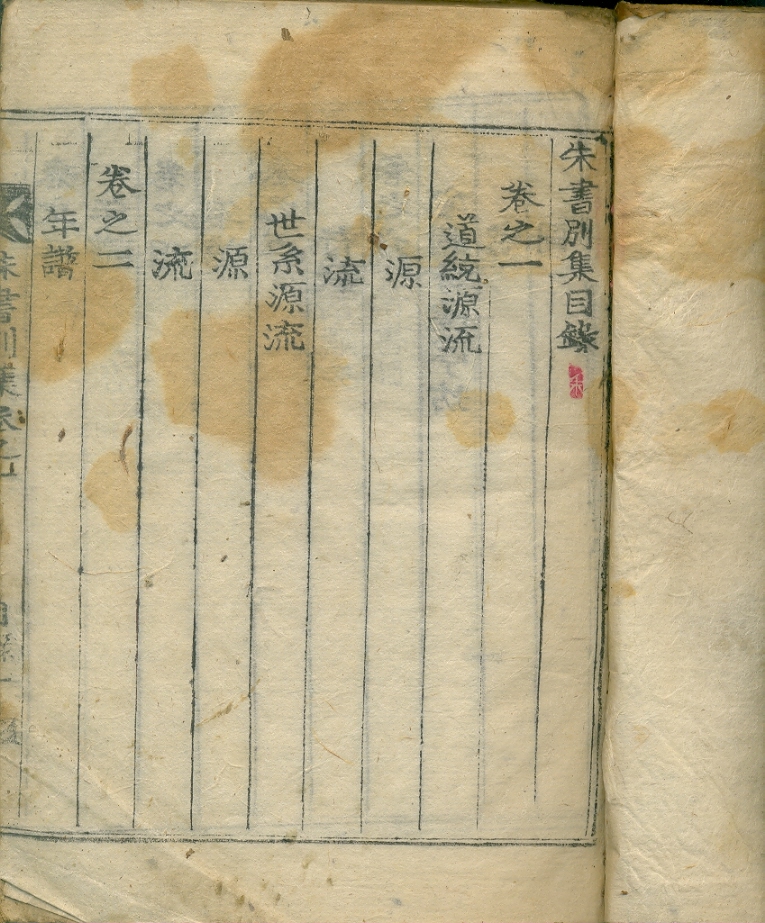 朱書別集目錄
卷之一
道統源流
源
流
世系源流
源
流
卷之二
年譜
朱書別集